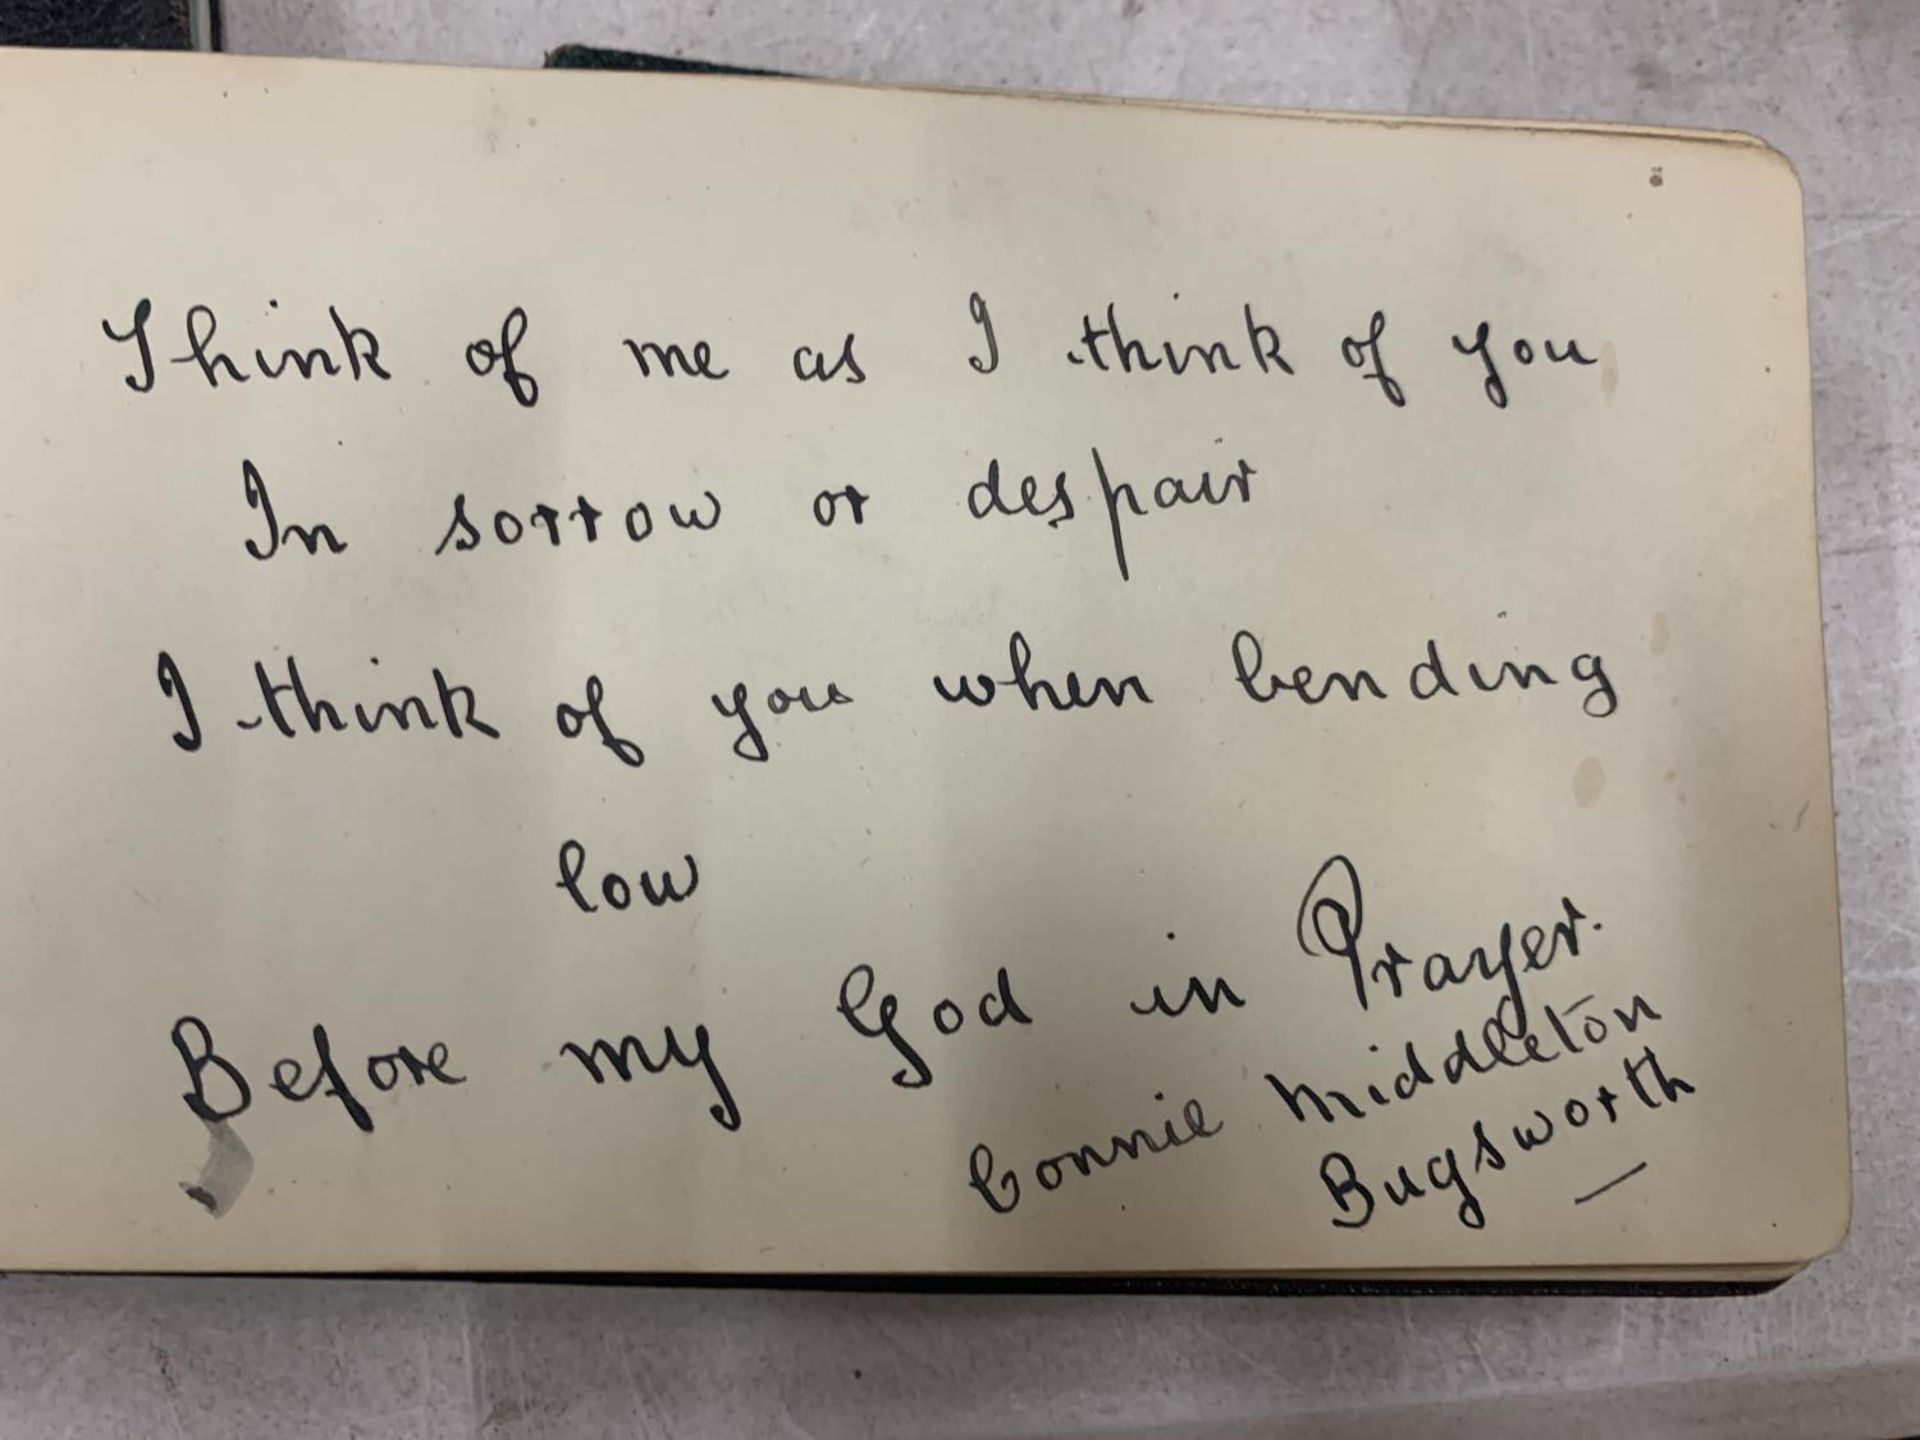 Think of me as I think of you
In sorrow or despair
I think of you when bending
low
Before my God in Prayer.
Connie Middleton
Bugsworth